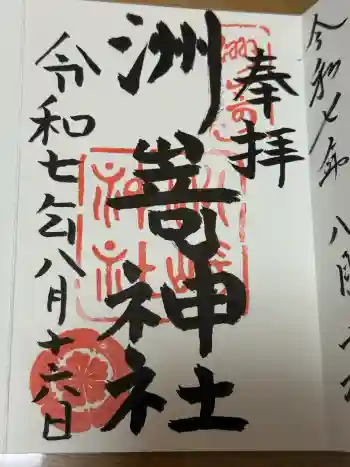 奉拝
洲嵜神社
令和七年八月十六日
令和七年